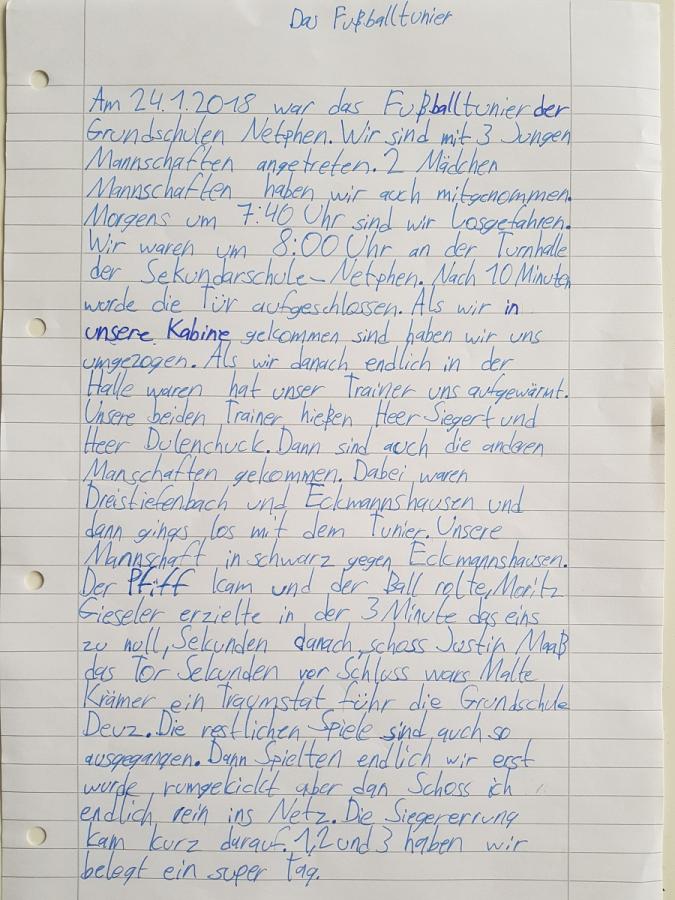 Das Fußballtunier
Am 24.1.2018 war das Fußballtunier der
Grundschulen Netphen. Wir sind mit 3 Jungen
Mannschaften angetreten. 2 Mädchen
Mannschaften haben wir auch mitgenommen.
Morgens um 7:40 Uhr sind wir Losgefahren.
Wir waren um 8:00 Uhr an der Turnhalle
der Sekundarschule-Netphen. Nach 10 Minuten
wurde die Tür aufgeschlossen. Als wir in
unsere Kabine gekommen sind haben wir uns
umgezogen. Als wir danach endlich in der
Halle waren hat unser Trainer uns aufgewärmt.
Unsere beiden Trainer hießen Heer Siegert und
Heer Dulenchuck. Dann sind auch die anderen
Manschaften gekommen. Dabei waren
Dreistiefenbach und Eckmannshausen und
dann gings los mit dem Tunier. Unsere
Mannschaft in schwarz gegen Eckmannshausen.
Der Pfiff kam und der Ball rolte, Moritz
Gieseler erzielte in der 3 Minute das eins
zu null, Sekunden danach, schoss Justin Maaß
das Tor Sekunden vor Schluss wars Malte
Krämer ein Traumstat führ die Grundschule
Deuz. Die restlichen Spiele sind auch so
ausgegangen. Dann Spielten endlich wir erst
wurde rumgekickt aber dan Schoss ich
endlich rein ins Netz. Die Siegererrung
kam kurz darauf. 1,2 und 3 haben wir
belegt ein super Tag.